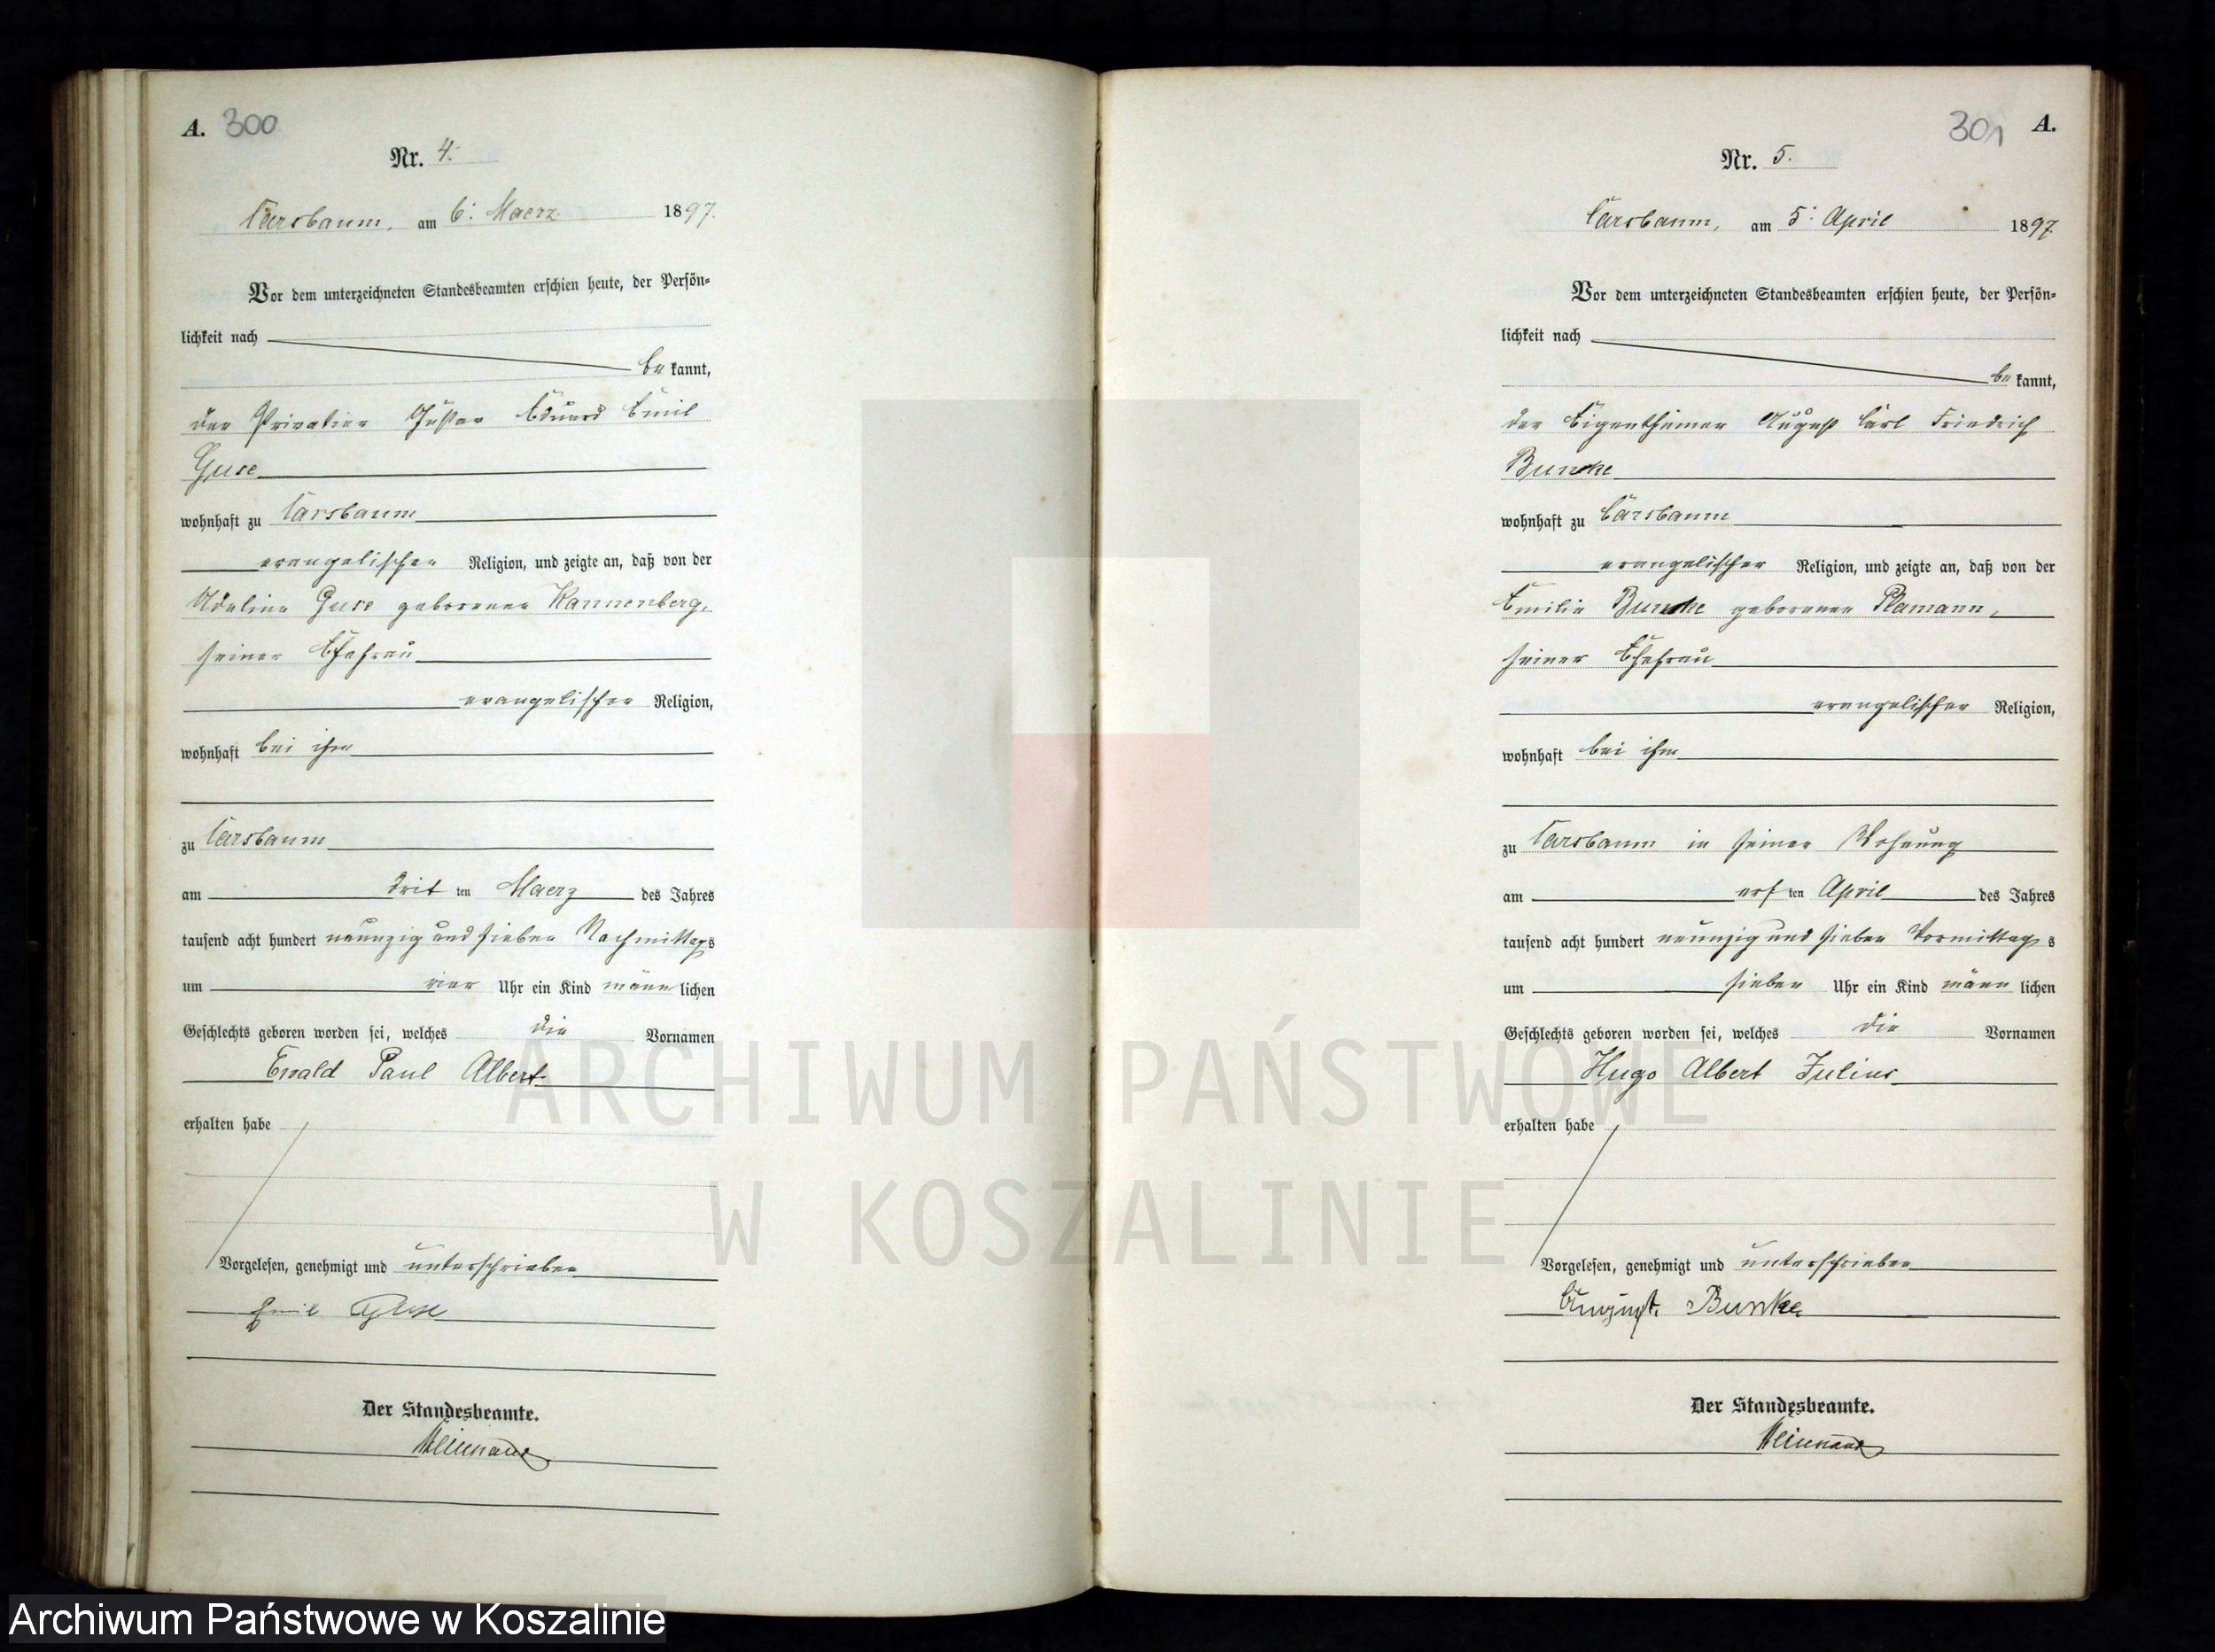 A. 300
Nr. 4.
Carsbaum, am 6. Maerz 1897.
Vor dem unterzeichneten Standesbeamten erschien heute, der Persön=
lichkeit nach
be kannt,
der Privatier Gustav Eduard Emil
Guse
wohnhaft zu Carsbaum
evangelischer Religion, und zeigte an, daß von der
Adeline Guse geborenen Kannenberg,
seiner Ehefrau
evangelischer Religion,
wohnhaft bei ihm
zu Carsbaum
am drit ten Maerz des Jahres
tausend acht hundert neunzig und sieben Nachmittags
um vier Uhr ein Kind männ lichen
Geschlechts geboren worden sei, welches die Vornamen
Ewald Paul Albert
erhalten habe
Vorgelesen, genehmigt und unterschrieben
Emil Guse
Der Standesbeamte.
301 A.
Nr. 5.
Carsbaum, am 5. April 1897.
Vor dem unterzeichneten Standesbeamten erschien heute, der Persön=
lichkeit nach
be kannt,
der Eigenthümer August Carl Friedrich
Buncke
wohnhaft zu Carsbaum
evangelischer Religion, und zeigte an, daß von der
Emilie Buncke geborenen Plamann,
seiner Ehefrau
evangelischer Religion,
wohnhaft bei ihm
zu Carsbaum in seiner Wohnung
am ers ten April des Jahres
tausend acht hundert neunzig und sieben Vormittag s
um sieben Uhr ein Kind männ lichen
Geschlechts geboren worden sei, welches die Vornamen
Hugo Albert Julius
erhalten habe
Vorgelesen, genehmigt und unterschrieben
August Bunke
Der Standesbeamte.
ARCHIWUM PAŃSTWOWE
W KOSZALINIE
Archiwum Państwowe w Koszalinie